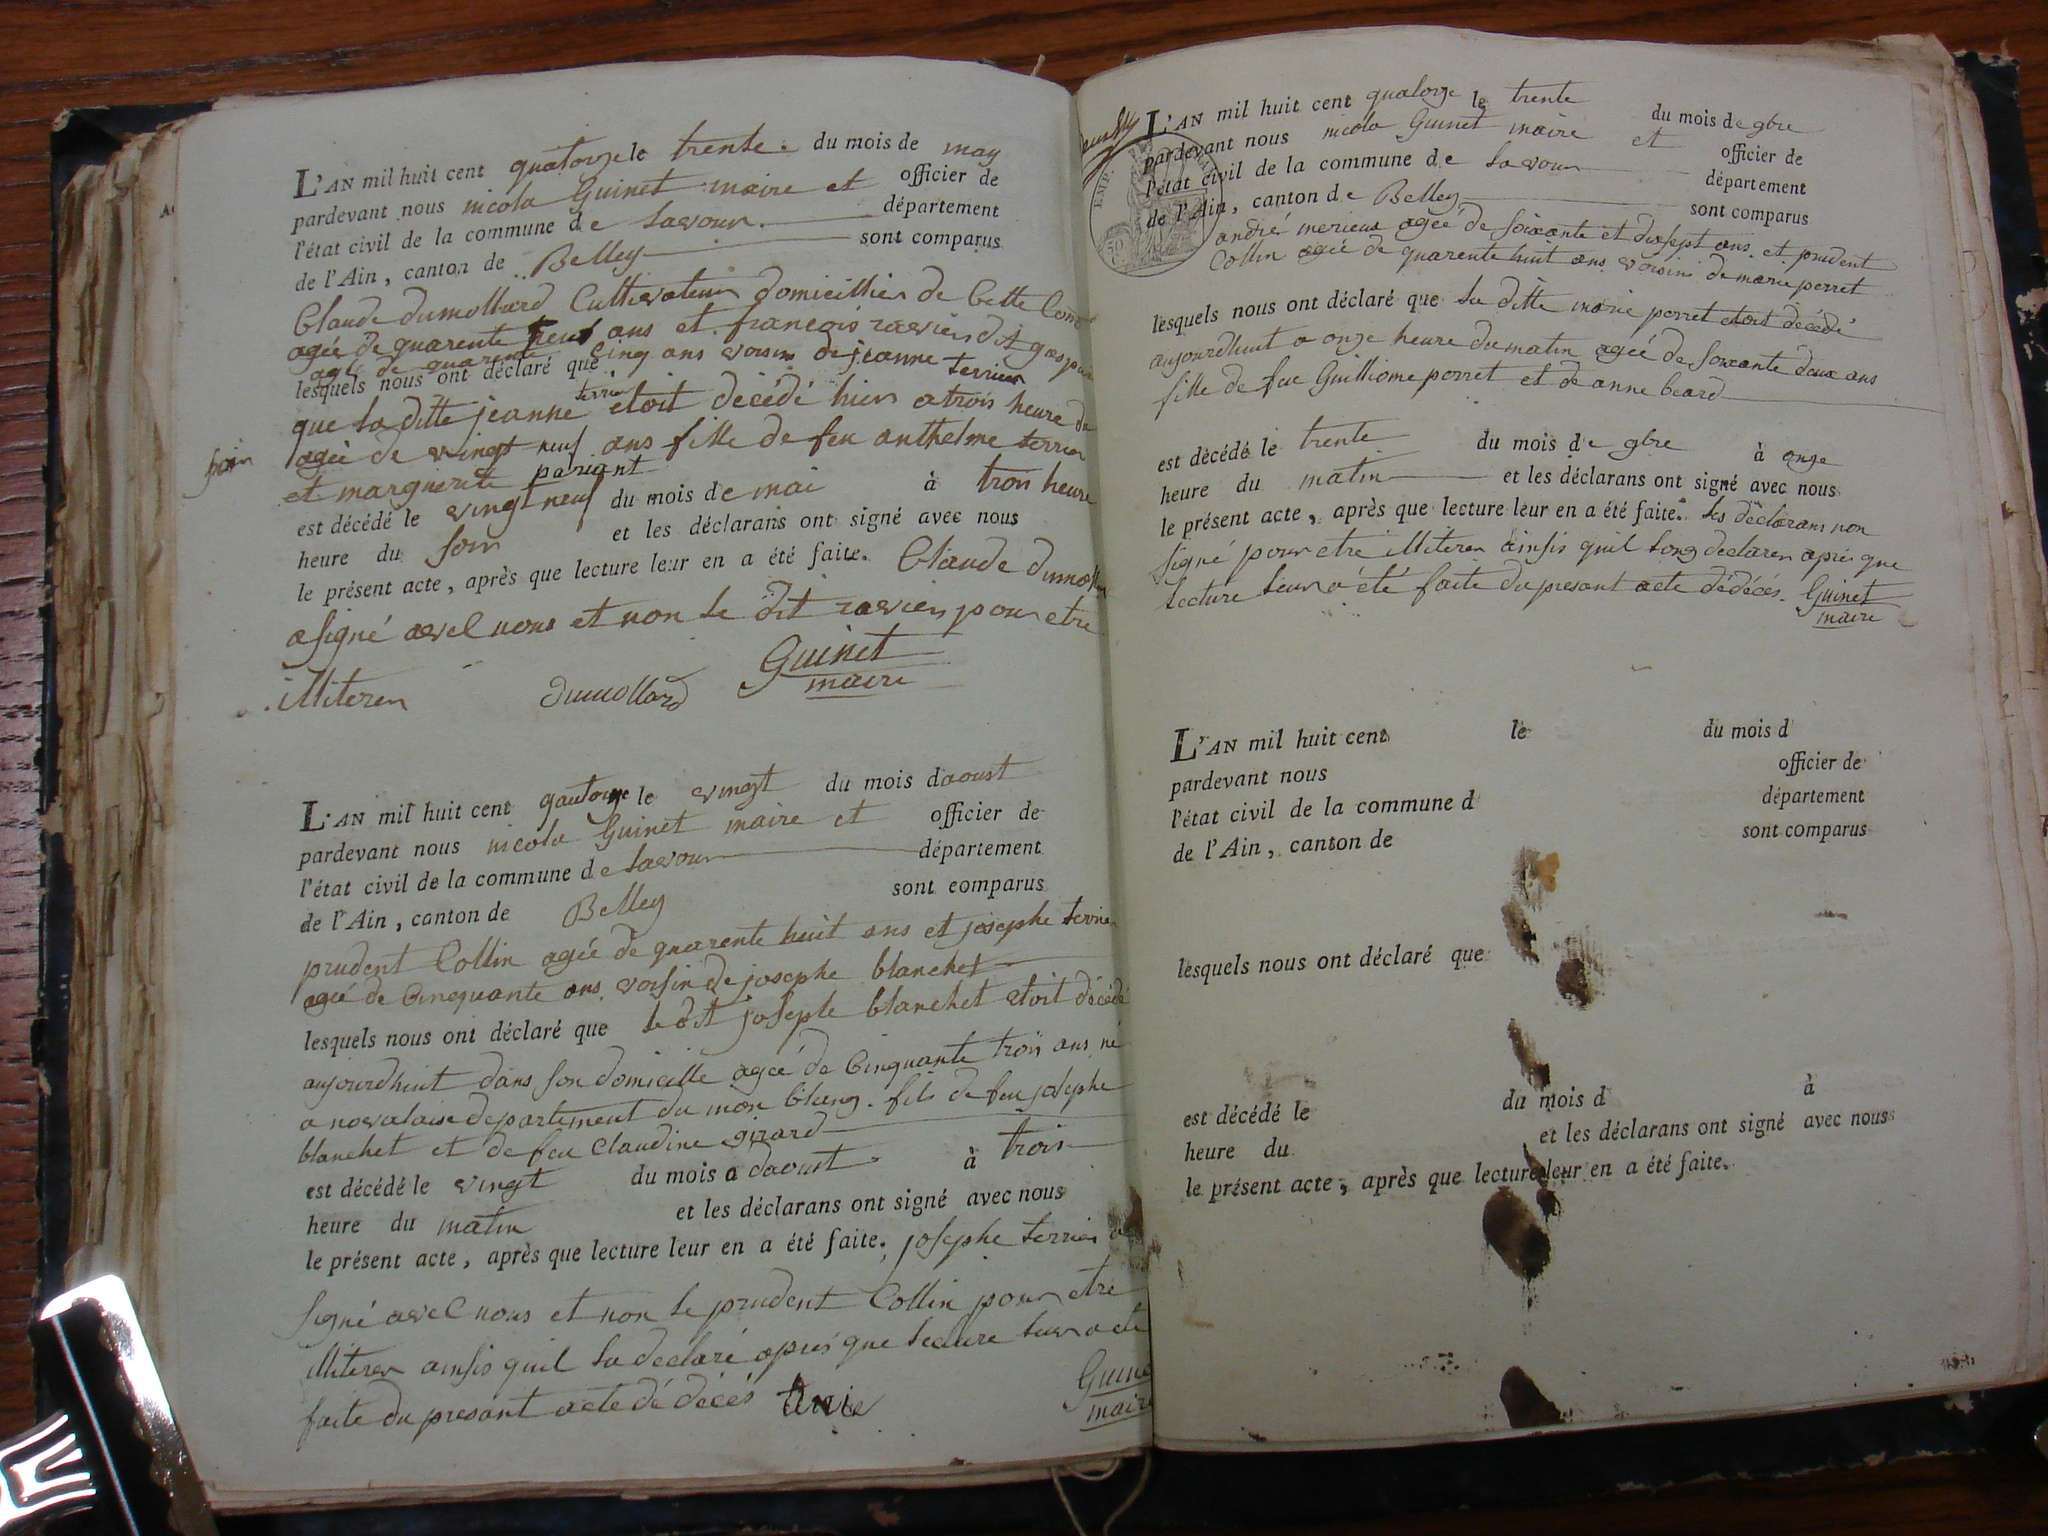 L'AN mil huit cent quatorze le trente du mois de may
pardevant nous nicola Guinet maire et officier de
l'état civil de la commune de Lavour département
de l'Ain, canton de Belley sont comparus
Claude dumollard Cultivateur domicillier de Cette Com
agée de quarente ans et françois ravier dit
agé de quarente cinq ans voisin de jeanne terrier
lesquels nous ont déclaré que
que la ditte jeanne terrier etoit décédé hier a trois heure du
soir agée de vingt neuf ans fille de feu anthelme terrier
et marguerite pariant
est décédé le vingt neuf du mois de mai à trois heure
heure du soir et les déclarans ont signé avec nous
le présent acte, après que lecture leur en a été faite. Claude dumollar
a signé avec nous et non le dit ravier pour etre
illiteren dumollard Guinet
maire
L'AN mil huit cent qautorze le vingt du mois daoust
pardevant nous nicola Guinet maire et officier de
l'état civil de la commune de Lavour département
de l'Ain, canton de Belley sont comparus
prudent Collin agée de quarente huit ans et josephe terrier
agée de Cinquante ans voisin de josephe blanchet
lesquels nous ont déclaré que le dit josephe blanchet etoit décédé
aujourdhuit dans son domicille agée de Cinquante trois ans né
a novalaise departement du mon blang. fils de feu josephe
blanchet et de feu Claudine girard
est décédé le vingt du mois d daoust à trois
heure du matin et les déclarans ont signé avec nous
le présent acte, après que lecture leur en a été faite. josephe terrier a
signé avec nous et non le prudent Collin pour etre
illiteren ainsis quil la declaré apres que lecture leur a eté
faite du presant acte dé décés Guine
maire
L'AN mil huit cent quatorze le trente du mois de 9bre
pardevant nous nicola Guinet maire et officier de
l'état civil de la commune de Lavour département
de l'Ain, canton de Belley sont comparus
andré merieux agée de soixante et dixsept ans et prudent
Collin agée de quarente huit ans voisin de marie perret
lesquels nous ont déclaré que la ditte marie perret etoit décédé
aujourdhuit a onze heure du matin agée de soixante deux ans
fille de feu Guilliome perret et de anne beard
est décédé le trente du mois de 9bre à onze
heure du matin et les déclarans ont signé avec nous
le présent acte, après que lecture leur en a été faite. les déclarans non
signé pour etre illiteren ainsis quil long declaren apres que
lecture leur a été faite du presant acte dédécés. Guinet
maire
L'AN mil huit cent le du mois d
pardevant nous officier de
l'état civil de la commune d département
de l'Ain, canton de sont comparus
lesquels nous ont déclaré que
est décédé le du mois d à
heure du et les déclarans ont signé avec nous
le présent acte, après que lecture leur en a été faite.